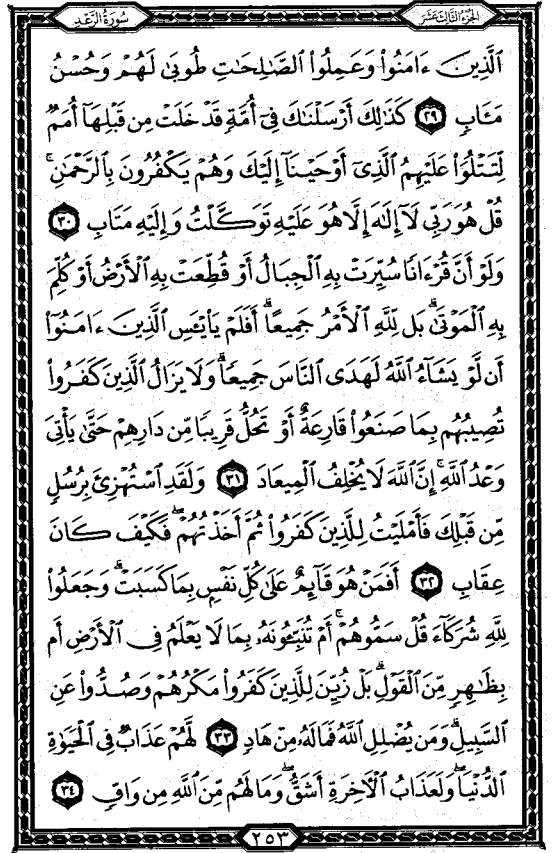 الجزء الثالث عشر
سورة الرعد
الَّذِينَ ءَامَنُوا۟ وَعَمِلُوا۟ الصَّٰلِحَٰتِ طُوبَىٰ لَهُمْ وَحُسْنُ
مَـَٔابٍ ٢٩ كَذَٰلِكَ أَرْسَلْنَٰكَ فِىٓ أُمَّةٍ قَدْ خَلَتْ مِن قَبْلِهَآ أُمَمٌ
لِّتَتْلُوَا۟ عَلَيْهِمُ الَّذِىٓ أَوْحَيْنَآ إِلَيْكَ وَهُمْ يَكْفُرُونَ بِالرَّحْمَٰنِ ۚ
قُلْ هُوَ رَبِّى لَآ إِلَٰهَ إِلَّا هُوَ عَلَيْهِ تَوَكَّلْتُ وَإِلَيْهِ مَتَابِ ٣٠
وَلَوْ أَنَّ قُرْءَانًا سُيِّرَتْ بِهِ الْجِبَالُ أَوْ قُطِّعَتْ بِهِ الْأَرْضُ أَوْ كُلِّمَ
بِهِ الْمَوْتَىٰ ۗ بَل لِّلَّهِ الْأَمْرُ جَمِيعًا ۗ أَفَلَمْ يَا۟يْـَٔسِ الَّذِينَ ءَامَنُوٓا۟
أَن لَّوْ يَشَآءُ اللَّهُ لَهَدَى النَّاسَ جَمِيعًا ۗ وَلَا يَزَالُ الَّذِينَ كَفَرُوا۟
تُصِيبُهُم بِمَا صَنَعُوا۟ قَارِعَةٌ أَوْ تَحُلُّ قَرِيبًا مِّن دَارِهِمْ حَتَّىٰ يَأْتِىَ
وَعْدُ اللَّهِ ۚ إِنَّ اللَّهَ لَا يُخْلِفُ الْمِيعَادَ ٣١ وَلَقَدِ اسْتُهْزِئَ بِرُسُلٍ
مِّن قَبْلِكَ فَأَمْلَيْتُ لِلَّذِينَ كَفَرُوا۟ ثُمَّ أَخَذْتُهُمْ ۖ فَكَيْفَ كَانَ
عِقَابِ ٣٢ أَفَمَنْ هُوَ قَآئِمٌ عَلَىٰ كُلِّ نَفْسٍۭ بِمَا كَسَبَتْ ۗ وَجَعَلُوا۟
لِلَّهِ شُرَكَآءَ قُلْ سَمُّوهُمْ ۚ أَمْ تُنَبِّـُٔونَهُۥ بِمَا لَا يَعْلَمُ فِى الْأَرْضِ أَم
بِظَٰهِرٍ مِّنَ الْقَوْلِ ۗ بَلْ زُيِّنَ لِلَّذِينَ كَفَرُوا۟ مَكْرُهُمْ وَصُدُّوا۟ عَنِ
السَّبِيلِ ۗ وَمَن يُضْلِلِ اللَّهُ فَمَا لَهُۥ مِنْ هَادٍ ٣٣ لَّهُمْ عَذَابٌ فِى الْحَيَوٰةِ
الدُّنْيَا ۖ وَلَعَذَابُ الْـَٔاخِرَةِ أَشَقُّ ۖ وَمَا لَهُم مِّنَ اللَّهِ مِن وَاقٍ ٣٤
٢٥٣